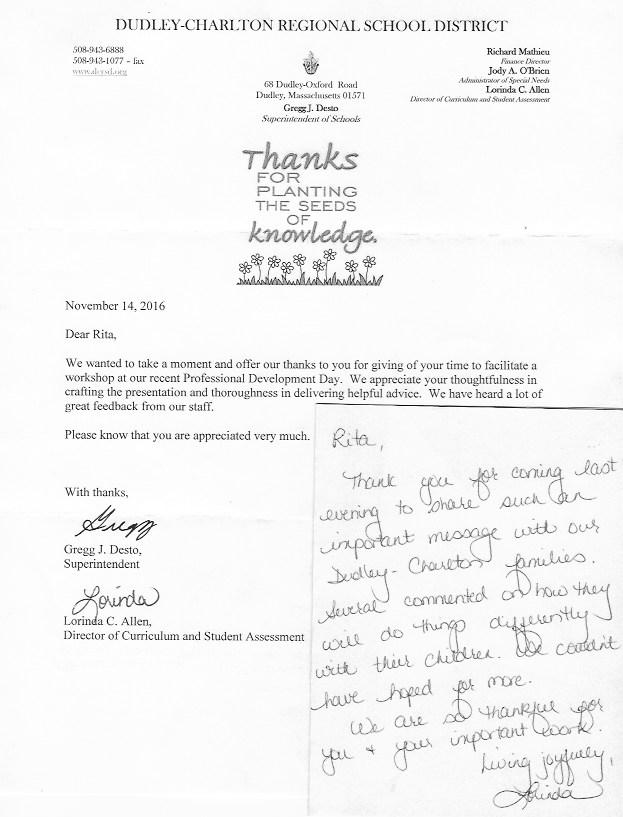 DUDLEY-CHARLTON REGIONAL SCHOOL DISTRICT
508-943-6888
508-943-1077 – fax
www.dcrsd.org
68 Dudley-Oxford Road
Dudley, Massachusetts 01571
Gregg J. Desto
Superintendent of Schools
Richard Mathieu
Finance Director
Jody A. O'Brien
Administrator of Special Needs
Lorinda C. Allen
Director of Curriculum and Student Assessment
Thanks
FOR
PLANTING
THE SEEDS
OF
knowledge.
November 14, 2016
Dear Rita,
We wanted to take a moment and offer our thanks to you for giving of your time to facilitate a
workshop at our recent Professional Development Day. We appreciate your thoughtfulness in
crafting the presentation and thoroughness in delivering helpful advice. We have heard a lot of
great feedback from our staff.
Please know that you are appreciated very much.
With thanks,
Gregg
Gregg J. Desto,
Superintendent
Lorinda
Lorinda C. Allen,
Director of Curriculum and Student Assessment
Rita,
Thank you for coming last
evening to share such an
important message with our
Dudley-Charlton families.
Several commented on how they
will do things differently
with their children. We couldn't
have hoped for more.
We are so thankful for
you + your important work.
Living joyfully,
Lorinda